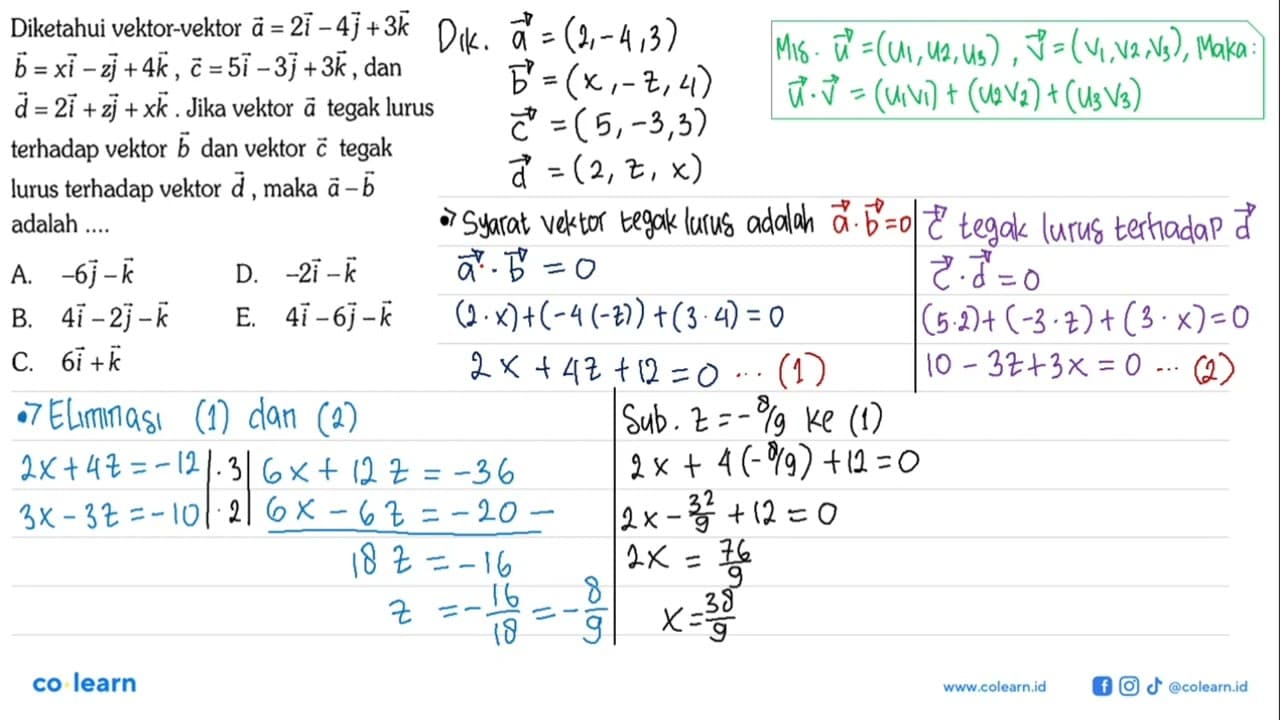 Diketahui vektor-vektor a⃗ = 2i⃗ – 4j⃗ + 3k⃗
b⃗ = xi⃗ – zj⃗ + 4k⃗ , c⃗ = 5i⃗ – 3j⃗ + 3k⃗ , dan
d⃗ = 2i⃗ + zj⃗ + xk⃗ . Jika vektor a⃗ tegak lurus
terhadap vektor b⃗ dan vektor c⃗ tegak
lurus terhadap vektor d⃗ , maka a⃗ – b⃗
adalah ....
A. –6j⃗ – k⃗ D. –2i⃗ – k⃗
B. 4i⃗ – 2j⃗ – k⃗ E. 4i⃗ – 6j⃗ – k⃗
C. 6i⃗ + k⃗
Dik. a⃗ = (2,-4,3)
b⃗ = (x,-z,4)
c⃗ = (5,-3,3)
d⃗ = (2, z, x)
Mis. u⃗ = (u1,u2,u3) , v⃗ = (v1,v2,v3), Maka :
u⃗ . v⃗ = (u1v1) + (u2v2) + (u3v3)
Syarat vektor tegak lurus adalah a⃗ . b⃗ = 0
a⃗ . b⃗ = 0
(2 . x) + (-4 (-z)) + (3 . 4) = 0
2x + 4z + 12 = 0 ... (1)
c⃗ tegak lurus terhadap d⃗
c⃗ . d⃗ = 0
(5.2) + (-3 . z) + (3 . x) = 0
10 - 3z + 3x = 0 ... (2)
Eliminasi (1) dan (2)
2x + 4z = -12 | . 3 | 6x + 12z = -36
3x - 3z = -10 | . 2 | 6x - 6z = -20 -
18z = -16
z = -16/18 = -8/9
Sub. z = -8/9 ke (1)
2x + 4(-8/9) + 12 = 0
2x - 32/9 + 12 = 0
2x = 76/9
x = 38/9
co learn
www.colearn.id
@colearn.id